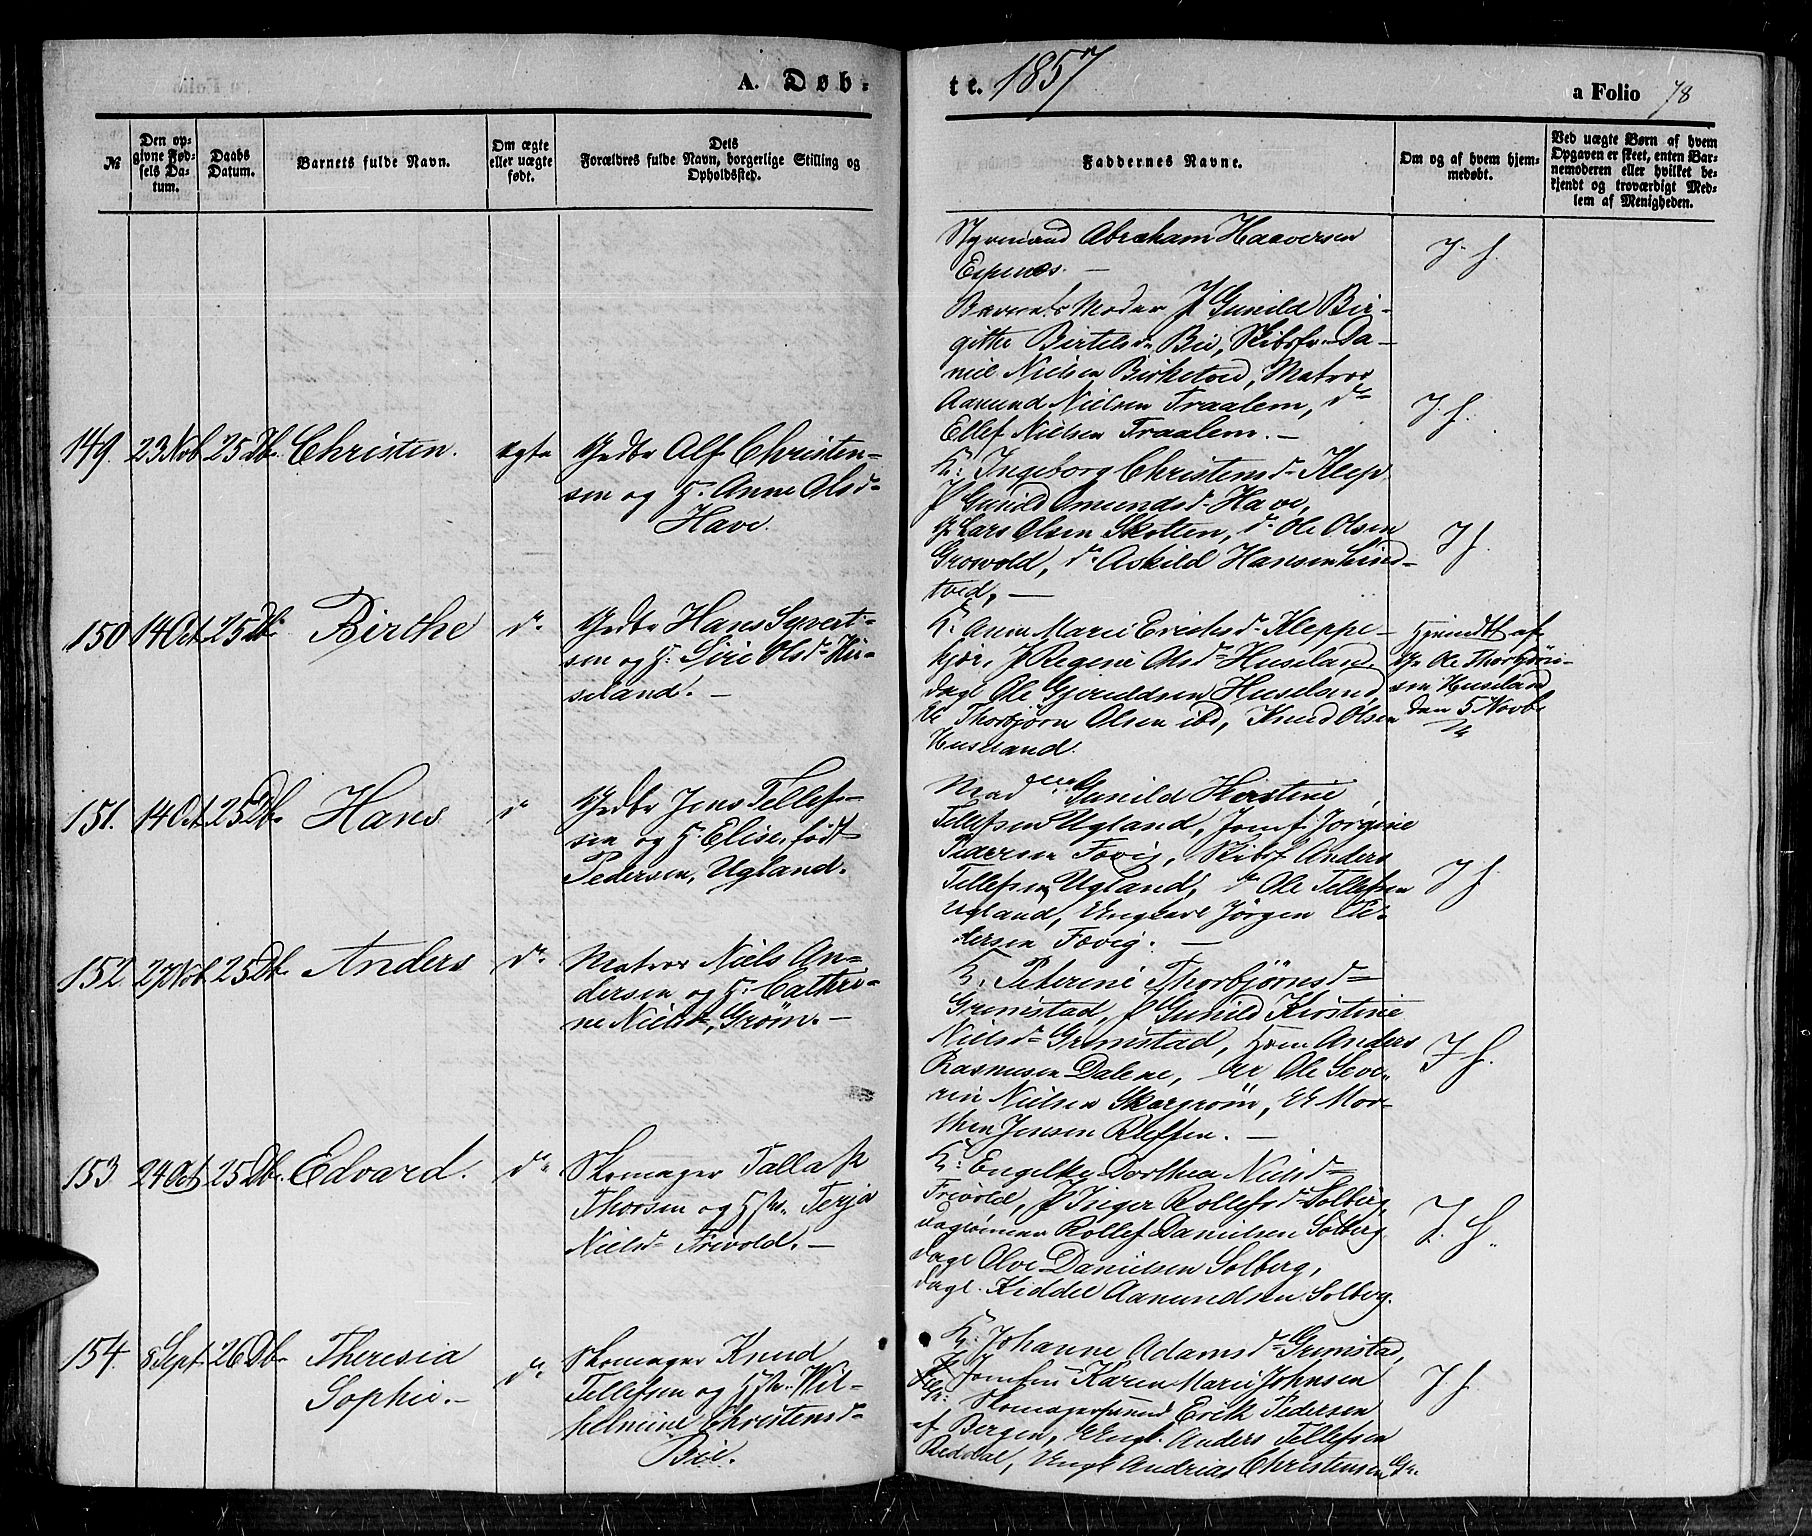 A. Døb-
te. 1857
a Folio 78
№
Den op-
givne Fød-
sels Da-
tum.
Daabs
Datum.
Barnets fulde Navn.
Om ægte
eller uægte
født.
Dets
Forældres fulde Navn, borgerlige Stilling og
Opholdssted.
Faddernes Navne.
Om og af hvem hjem-
medøbt.
Ved uægte Børn af hvem
Opgaven er skeet, enten Bar-
nemoderen eller hvilket be-
kjendt og troværdigt Med-
lem af Menigheden.
Styrmand Abraham Haaversen
Espenæs. —
J. f.
149. 23 Nob 25 Db. Christen. ægte
Grdbr Alf Christen-
sen og H. Anne Olsd-
Have.
Barnets Moder P Gunild Bir-
gitte Birtelsd. Bie, Skibsfr. Da-
niel Nielsen Birketved, Matros
Aanund Nielsen Traalem, do
Ellef Nielsen Traalem. —
J. f.
150 14 Oct. 25 Db. Birthe do
Grdbr Hans Syvert-
sen og H. Sirie Olsd. Hu-
seland. —
K: Ingeborg Christensd. Klep,
P Gunild Omundsd. Have,
G Lars Olsen Skotten, do Ole Olsen
Groswold, do Askild Hansen Lind-
tved, —
J f.
151. 14 Oct. 25 Db. Hans do
Grdbr Jens Tellef-
sen og H. Elise, født
Pedersen, Ugland.
K. Anne Marie Erichsd. Kleppe-
kjær, P Regine Olsd. Huseland,
Dagl Ole Gjeruldsen Huseland,
Thorbjørn Olsen ibd, Knud Olsen
Huseland.
Hjemdt af
Ole Thorbjørn-
sen Huseland
den 5 Novb
152. 27 Nob. 25 Db. Anders do
Matros Niels An-
dersen og H. Cathri-
ne Nielsd, Grøm. —
Madame Gunild Kirstine
Tellefsen Ugland, Jomf. Jørgine
Pedersen Fævig, Skibsf Anders
Tellefsen Ugland, do Ole Tellefsen
Ugland, Ungkarl Jörgen Pe-
dersen Fævig. —
J f.
153. 24 Oct 25 Db. Edvard. do
Skomager Tallak
Thorsen og Hst. Terja
Nielsd Frivold. —
K. Peterine Thorbjørnsd
Grimstad, P Gunild Kirstine
Nielsd Grimstad, Hrm Anders
Rasmusen Dalene, Ole Seve-
rin Nielsen Skargrøm, Mor-
then Jensen Kleffen. —
J f.
154. 8 Sept. 26 Db. Theresia
Sophie. — do
Skomager Knud
Tellefsen og Hst. Wil-
helmine Christensd
Bie.
K: Engelke Dorthea Nielsd
Frivold, P Inger Rollefsd. Solberg,
Daglønner Rollef Danielsen Solberg
Dagl Olve Danielsen Solberg,
Dagl. Kiddel Aanundsen Solberg.
J. f.
K. Johanne Adamsd. Grimstad,
Jomfru Karen Marie Johnsen
Gr: Skomagersvend Erik Pedersen
af Bergen, Ungk. Anders Tellefsen
Reddal, Ungk Andrias Christensen, Gr.
J f.